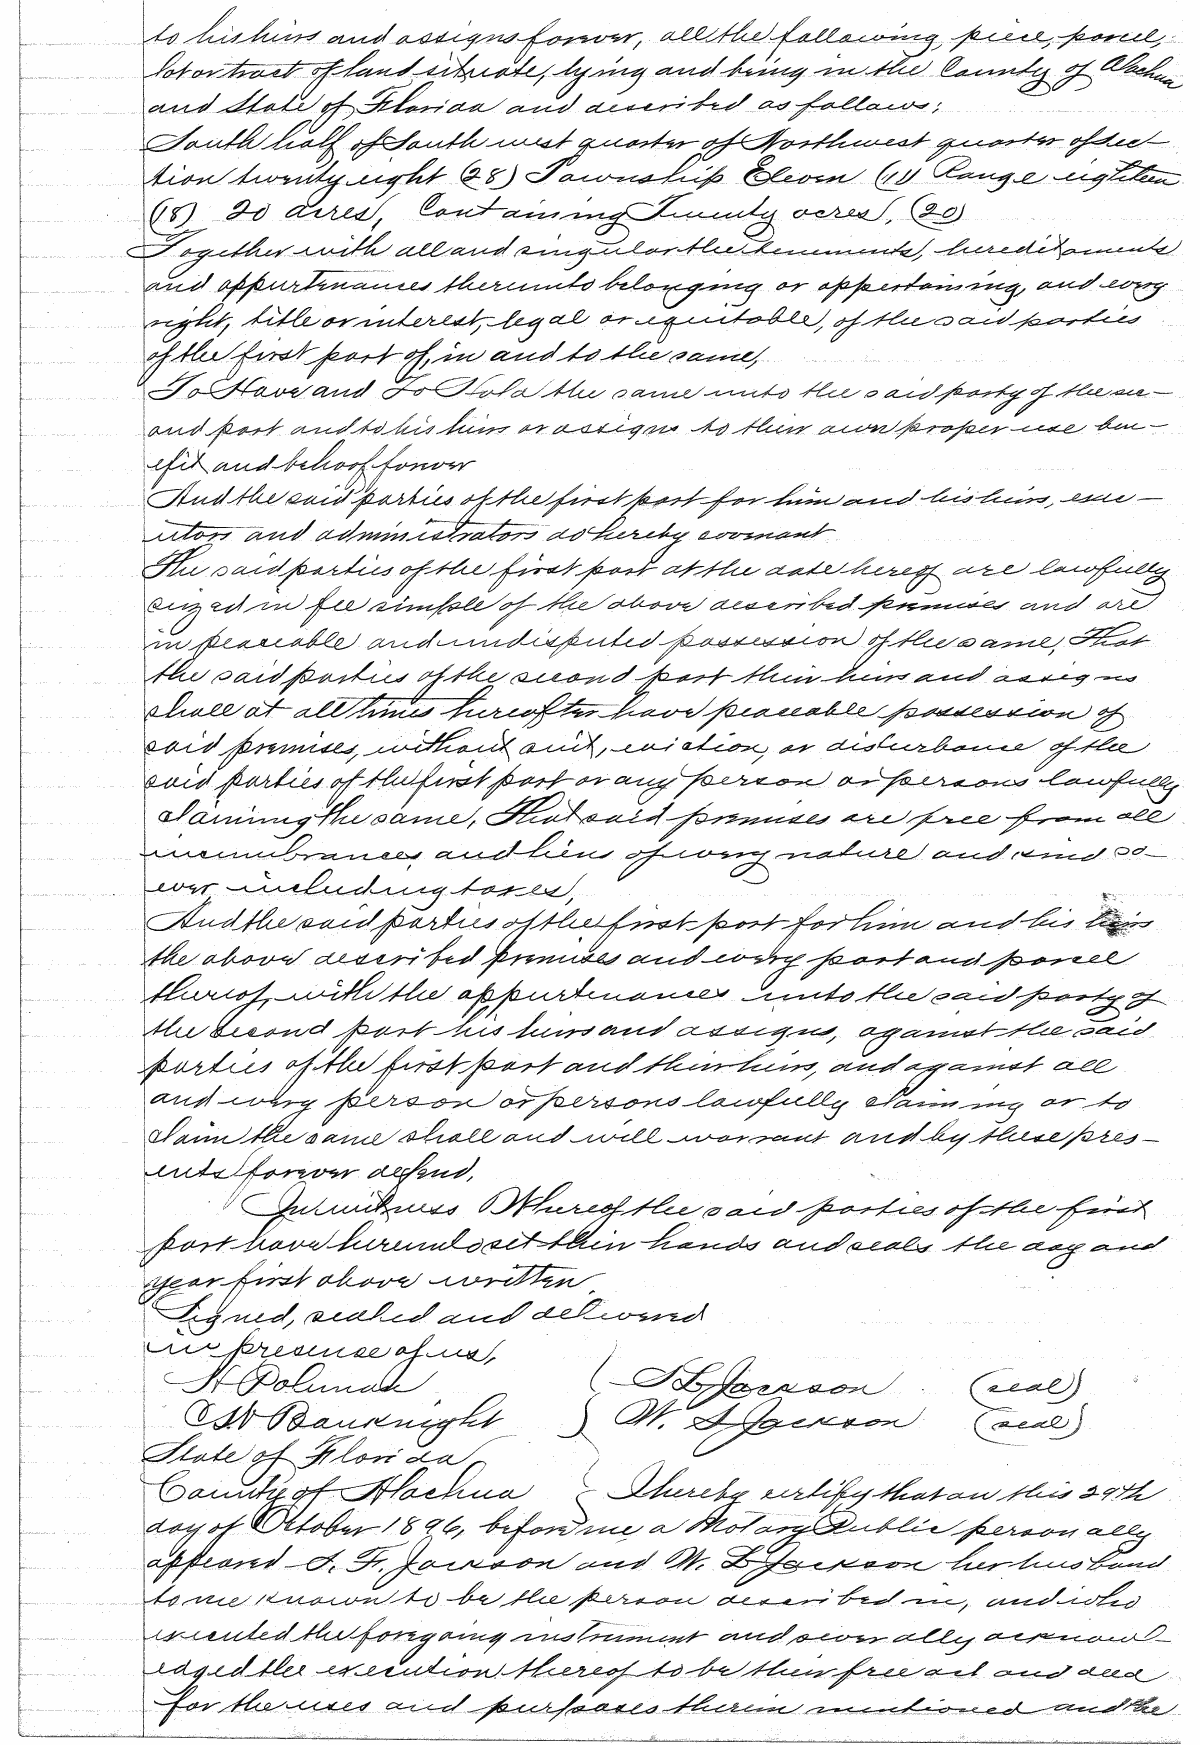 to his heirs and assigns forever, all the following piece, parcel,
lot or tract of land situate, lying and being in the County of Alachua
and State of Florida and described as follows;
South half of South west quarter of Northwest quarter of sec-
tion twenty eight (28) Township Eleven (11) Range eighteen
(18) 20 acres, Containing Twenty acres, (20)
Together with all and singular the tenements, hereditaments
and appurtenances thereunto belonging or appertaining, and every
right, title or interest, legal or equitable, of the said parties
of the first part of, in and to the same,
To Have and To Hold the same unto the said party of the sec-
ond part and to his heirs or assigns to their own proper use ben-
efit and behoof forever
And the said parties of the first part for him and his heirs, exec-
utors and administrators do hereby covenant
The said parties of the first part at the date hereof are lawfully
seized in fee simple of the above described premises and are
in peaceable and undisputed possession of the same, That
the said parties of the second part their heirs and assigns
shall at all times hereafter have peaceable possession of
said premises, without suit, eviction, or disturbance of the
said parties of the first part or any person or persons lawfully
claiming the same, That said premises are free from all
incumbrances and liens of every nature and kind so-
ever including taxes,
And the said parties of the first part for him and his heirs
the above described premises and every part and parcel
thereof, with the appurtenances unto the said party of
the second part his heirs and assigns, against the said
parties of the first part and their heirs, and against all
and every person or persons lawfully claiming or to
claim the same shall and will warrant and by these pres-
ents forever defend.
In witness Whereof the said parties of the first
part have hereunto set their hands and seals the day and
year first above written
Signed, sealed and delivered
in presence of us,
H Bauknight ( Jackson (seal)
Bauknight ) W. Jackson (seal)
State of Florida
County of Alachua } I hereby certify that on this 29th
day of October 1896, before me a Notary Public personally
appeared S. F. Jackson and W. L Jackson her husband
to me known to be the person described in, and who
executed the foregoing instrument and severally acknow-
edged the execution thereof to be their free act and deed
for the uses and purposes therein mentioned and the